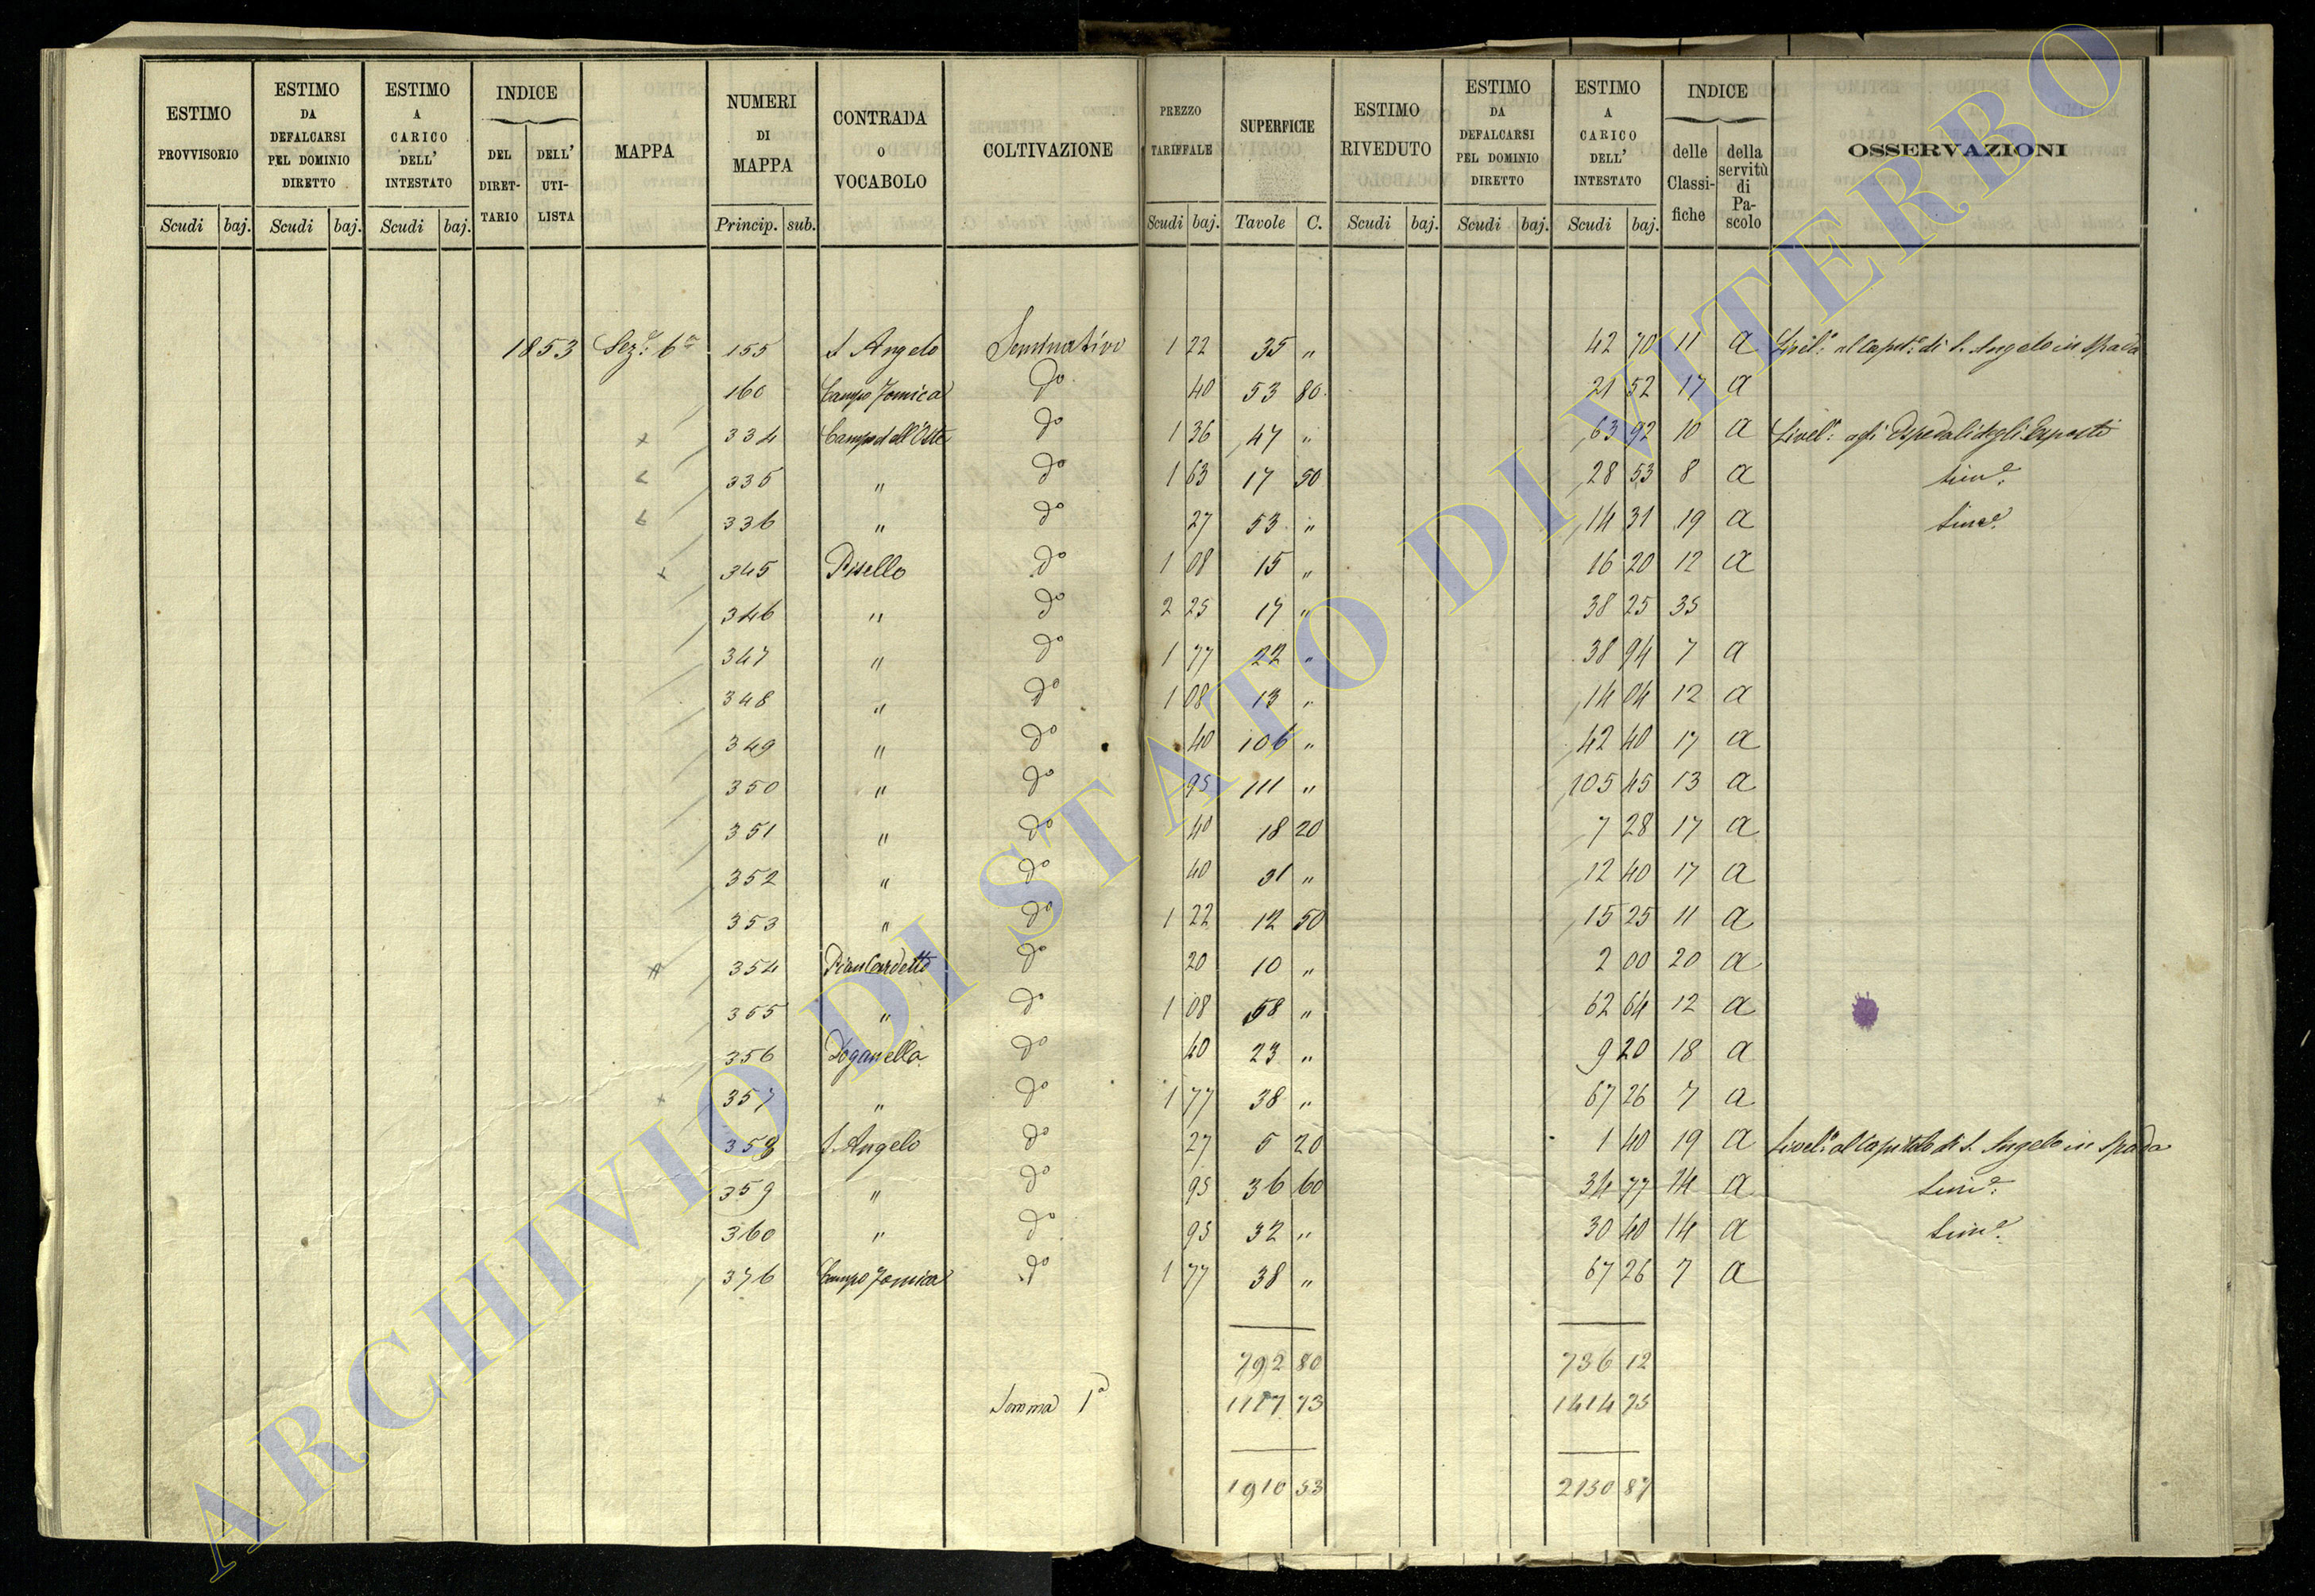 ESTIMO PROVVISORIO Scudi baj.
ESTIMO DA DEFALCARSI PEL DOMINIO DIRETTO Scudi baj.
ESTIMO A CARICO DELL' INTESTATO Scudi baj.
INDICE DEL DIRET-TARIO DELL' UTI-LISTA
MAPPA
NUMERI DI MAPPA Princip. sub.
CONTRADA O VOCABOLO
COLTIVAZIONE
PREZZO TARIFFALE Scudi baj.
SUPERFICIE Tavole C.
ESTIMO RIVEDUTO Scudi baj.
ESTIMO DA DEFALCARSI PEL DOMINIO DIRETTO Scudi baj.
ESTIMO A CARICO DELL' INTESTATO Scudi baj.
INDICE delle Classi-fiche della servitù di Pa-scolo
OSSERVAZIONI
1853 Sez.e 6a 155 S. Angelo Seminativo 1 22 35 " 42 70 11 a Livel.o al Capit.o di S. Angelo in Spada
160 Campo Jomica do 40 53 80 21 52 17 a
334 Campo dell'Oste do 1 36 47 " 63 92 10 a Livel.o agli Ospedali degli Esposti
335 " do 1 63 17 50 28 53 8 a Sim.e
336 " do 27 53 " 14 31 19 a Sim.e
345 Pisello do 1 08 15 " 16 20 12 a
346 " do 2 25 17 " 38 25 35
347 " do 1 77 22 " 38 94 7 a
348 " do 1 08 13 " 14 04 12 a
349 " do 40 106 " 42 40 17 a
350 " do 95 111 " 105 45 13 a
351 " do 40 18 20 7 28 17 a
352 " do 40 31 " 12 40 17 a
353 " do 1 22 12 50 15 25 11 a
354 Pian Cardetto do 20 10 " 2 00 20 a
355 " do 1 08 58 " 62 64 12 a
356 Doganella do 40 23 " 9 20 18 a
357 " do 1 77 38 " 67 26 7 a
358 S. Angelo do 27 5 20 1 40 19 a Livel.o al Capitolo di S. Angelo in Spada
359 " do 95 36 60 34 77 14 a Sim.e
360 " do 95 32 " 30 40 14 a Sim.e
376 Campo Jomica do 1 77 38 " 67 26 7 a
792 80 736 12
Somma 1a 1117 73 1414 75
1910 53 2150 87
ARCHIVIO DI STATO DI VITERBO